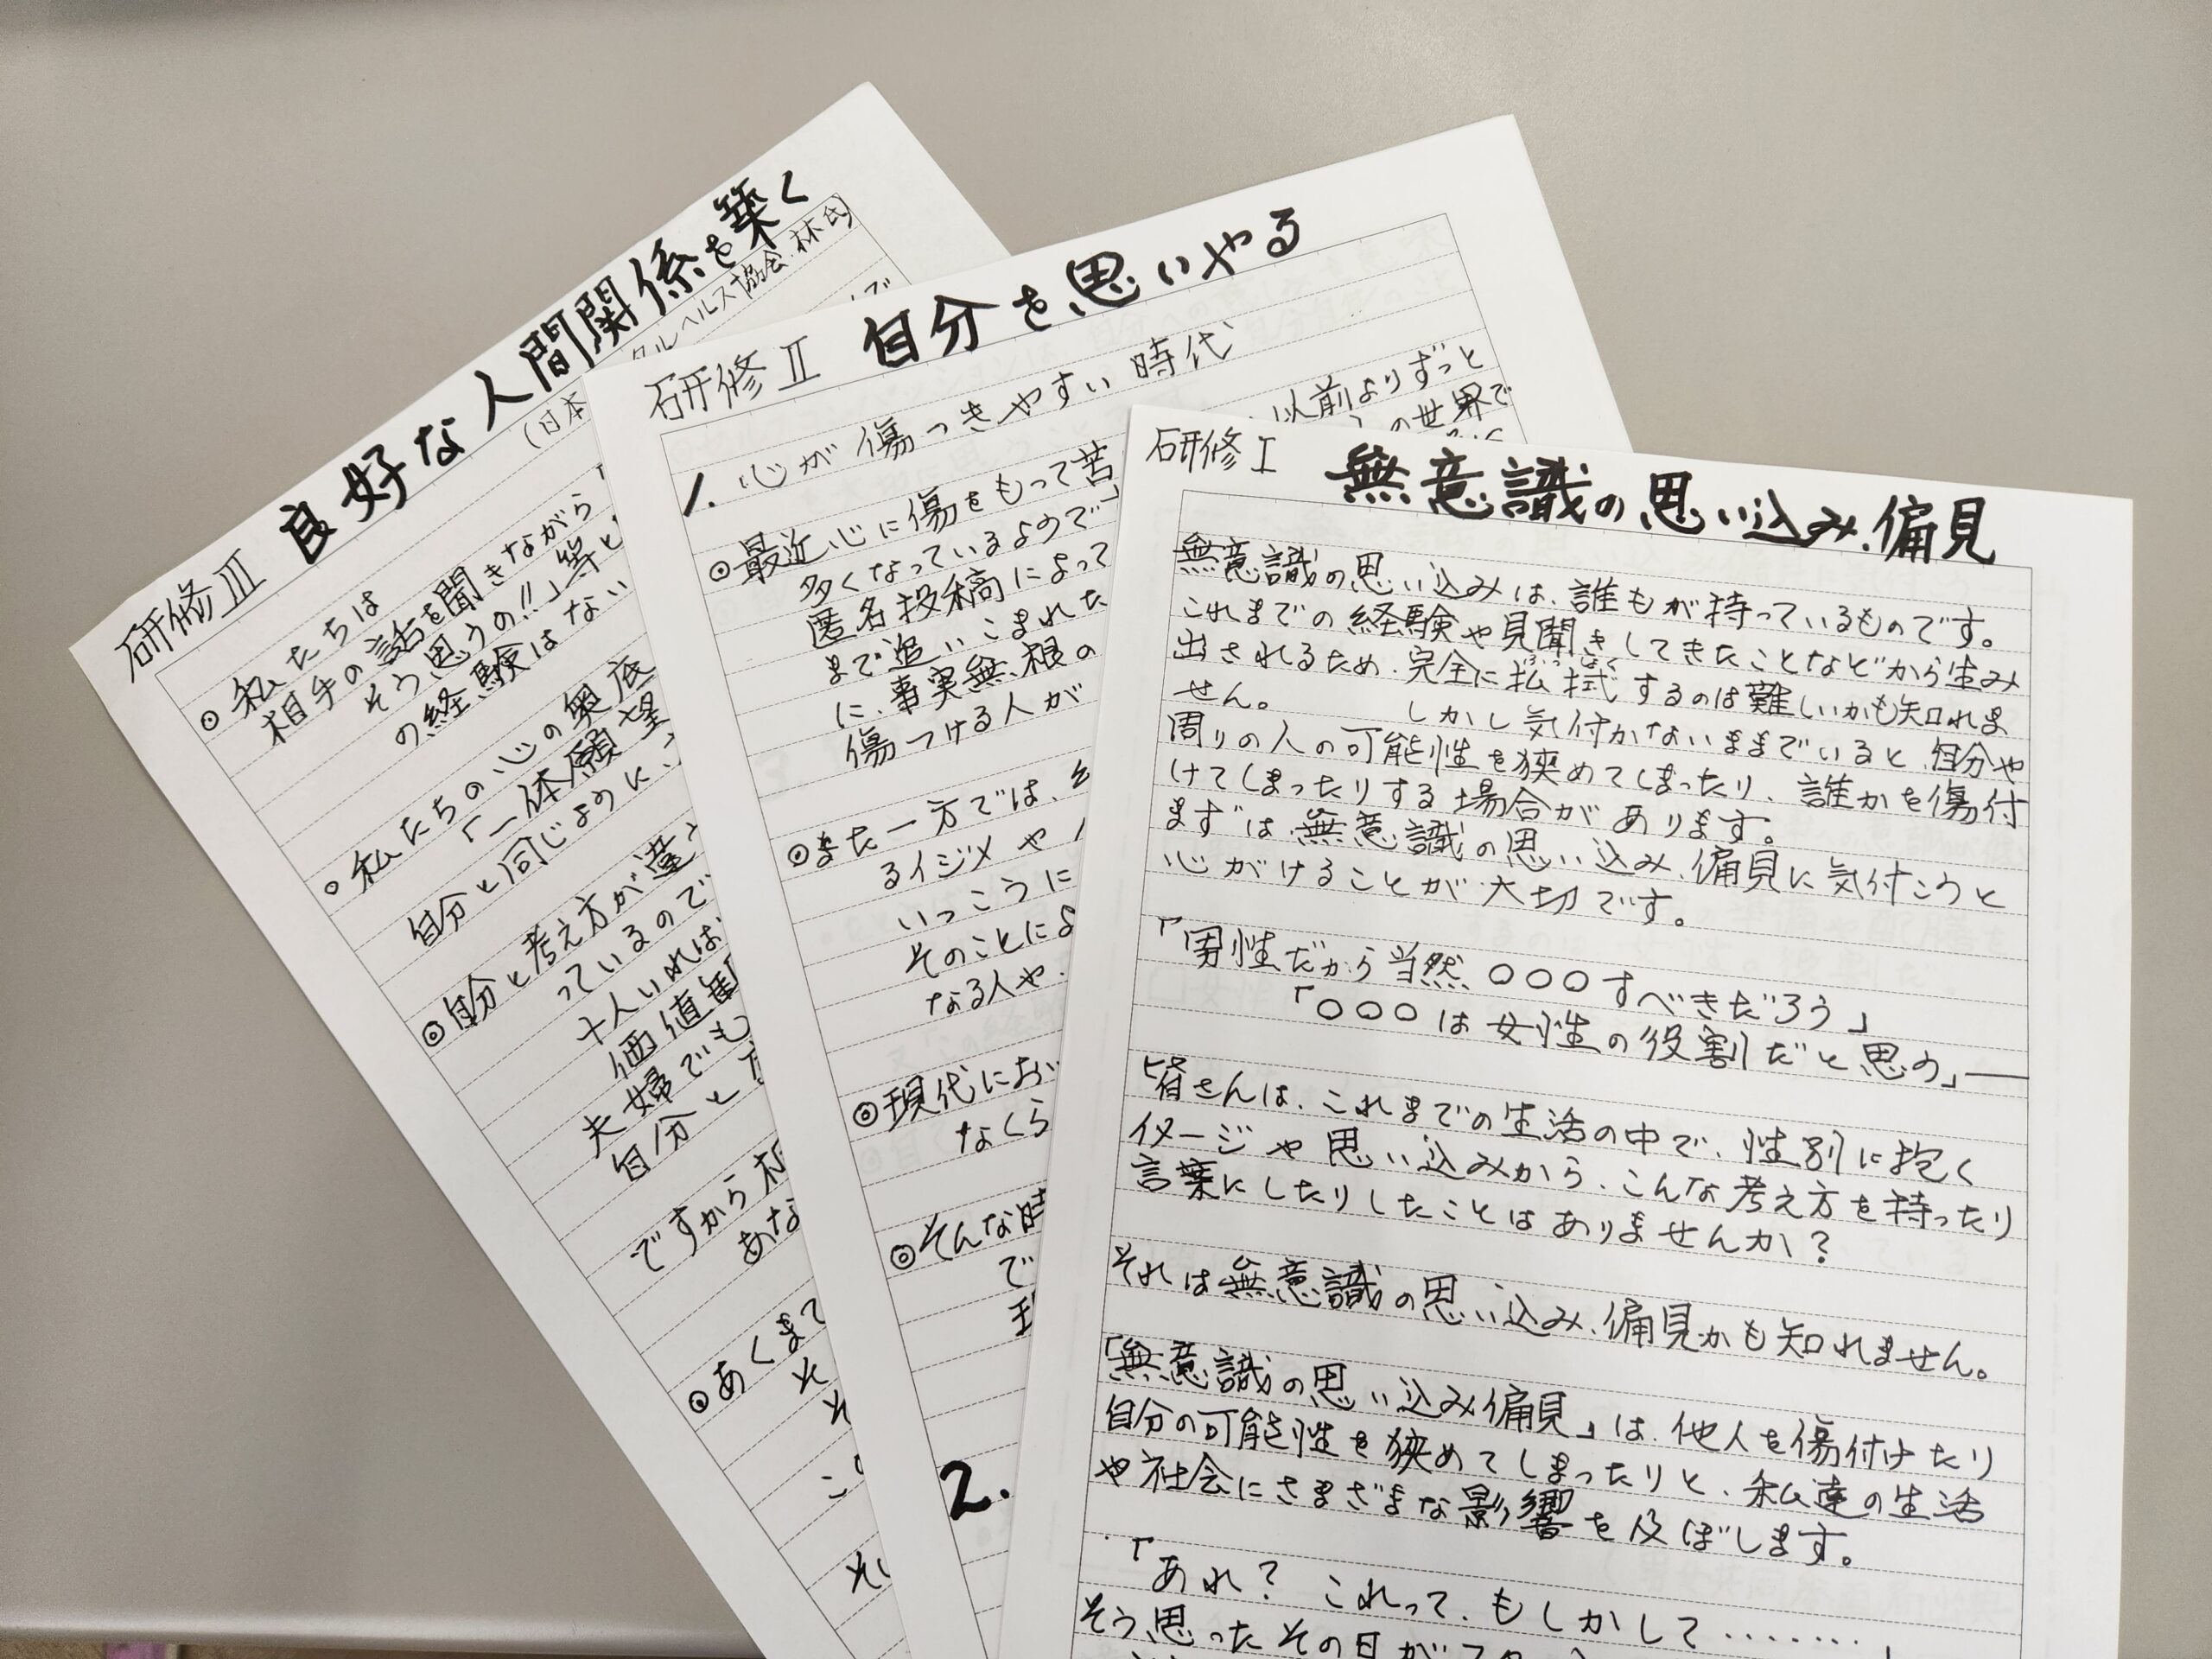 研修Ⅲ 良好な人間関係を築く
タルヘルス協会.林氏)
(日本
◎私たちは
相手の話を聞きながら「
そう思うの!!」等と
の経験はない
○私たちの心の奥底
「一体願望
自分と同じように、
◎自分と考え方が違
っているので
十人いれば
価値観
夫婦でも
自分と
ですから相
あな
◎あくまで
そ
そ
こ
研修Ⅱ 自分を思いやる
1. 心が傷つきやすい時代
以前よりずっと
の世界で
◎最近心に傷をもって苦
多くなっているようで
匿名投稿によって
まで追いこまれた
に、事実無根の
傷つける人が
◎また一方では、
るイジメや
いっこうに
そのことによ
なる人や、
◎現代にお
なくら
◎そんな時
で
現
2.
研修Ⅰ 無意識の思い込み、偏見
無意識の思い込みは、誰もが持っているものです。
これまでの経験や見聞きしてきたことなどから生み
出されるため、完全に払拭するのは難しいかも知れま
せん。 しかし気付かないままでいると、自分や
周りの人の可能性を狭めてしまったり、誰かを傷付
けてしまったりする場合があります。
まずは、無意識の思い込み、偏見に気付こうと
心がけることが大切です。
「男性だから当然 ○○○すべきだろう」
「○○○は女性の役割だと思う」―
皆さんは、これまでの生活の中で、性別に抱く
イメージや思い込みから、こんな考え方を持ったり
言葉にしたりしたことはありませんか?
それは無意識の思い込み、偏見かも知れません。
「無意識の思い込み偏見」は、他人を傷付けたり
自分の可能性を狭めてしまったりと、私達の生活
や社会にさまざまな影響を及ぼします。
「あれ? これって、もしかして・・・・・・・」
そう思ったその日が